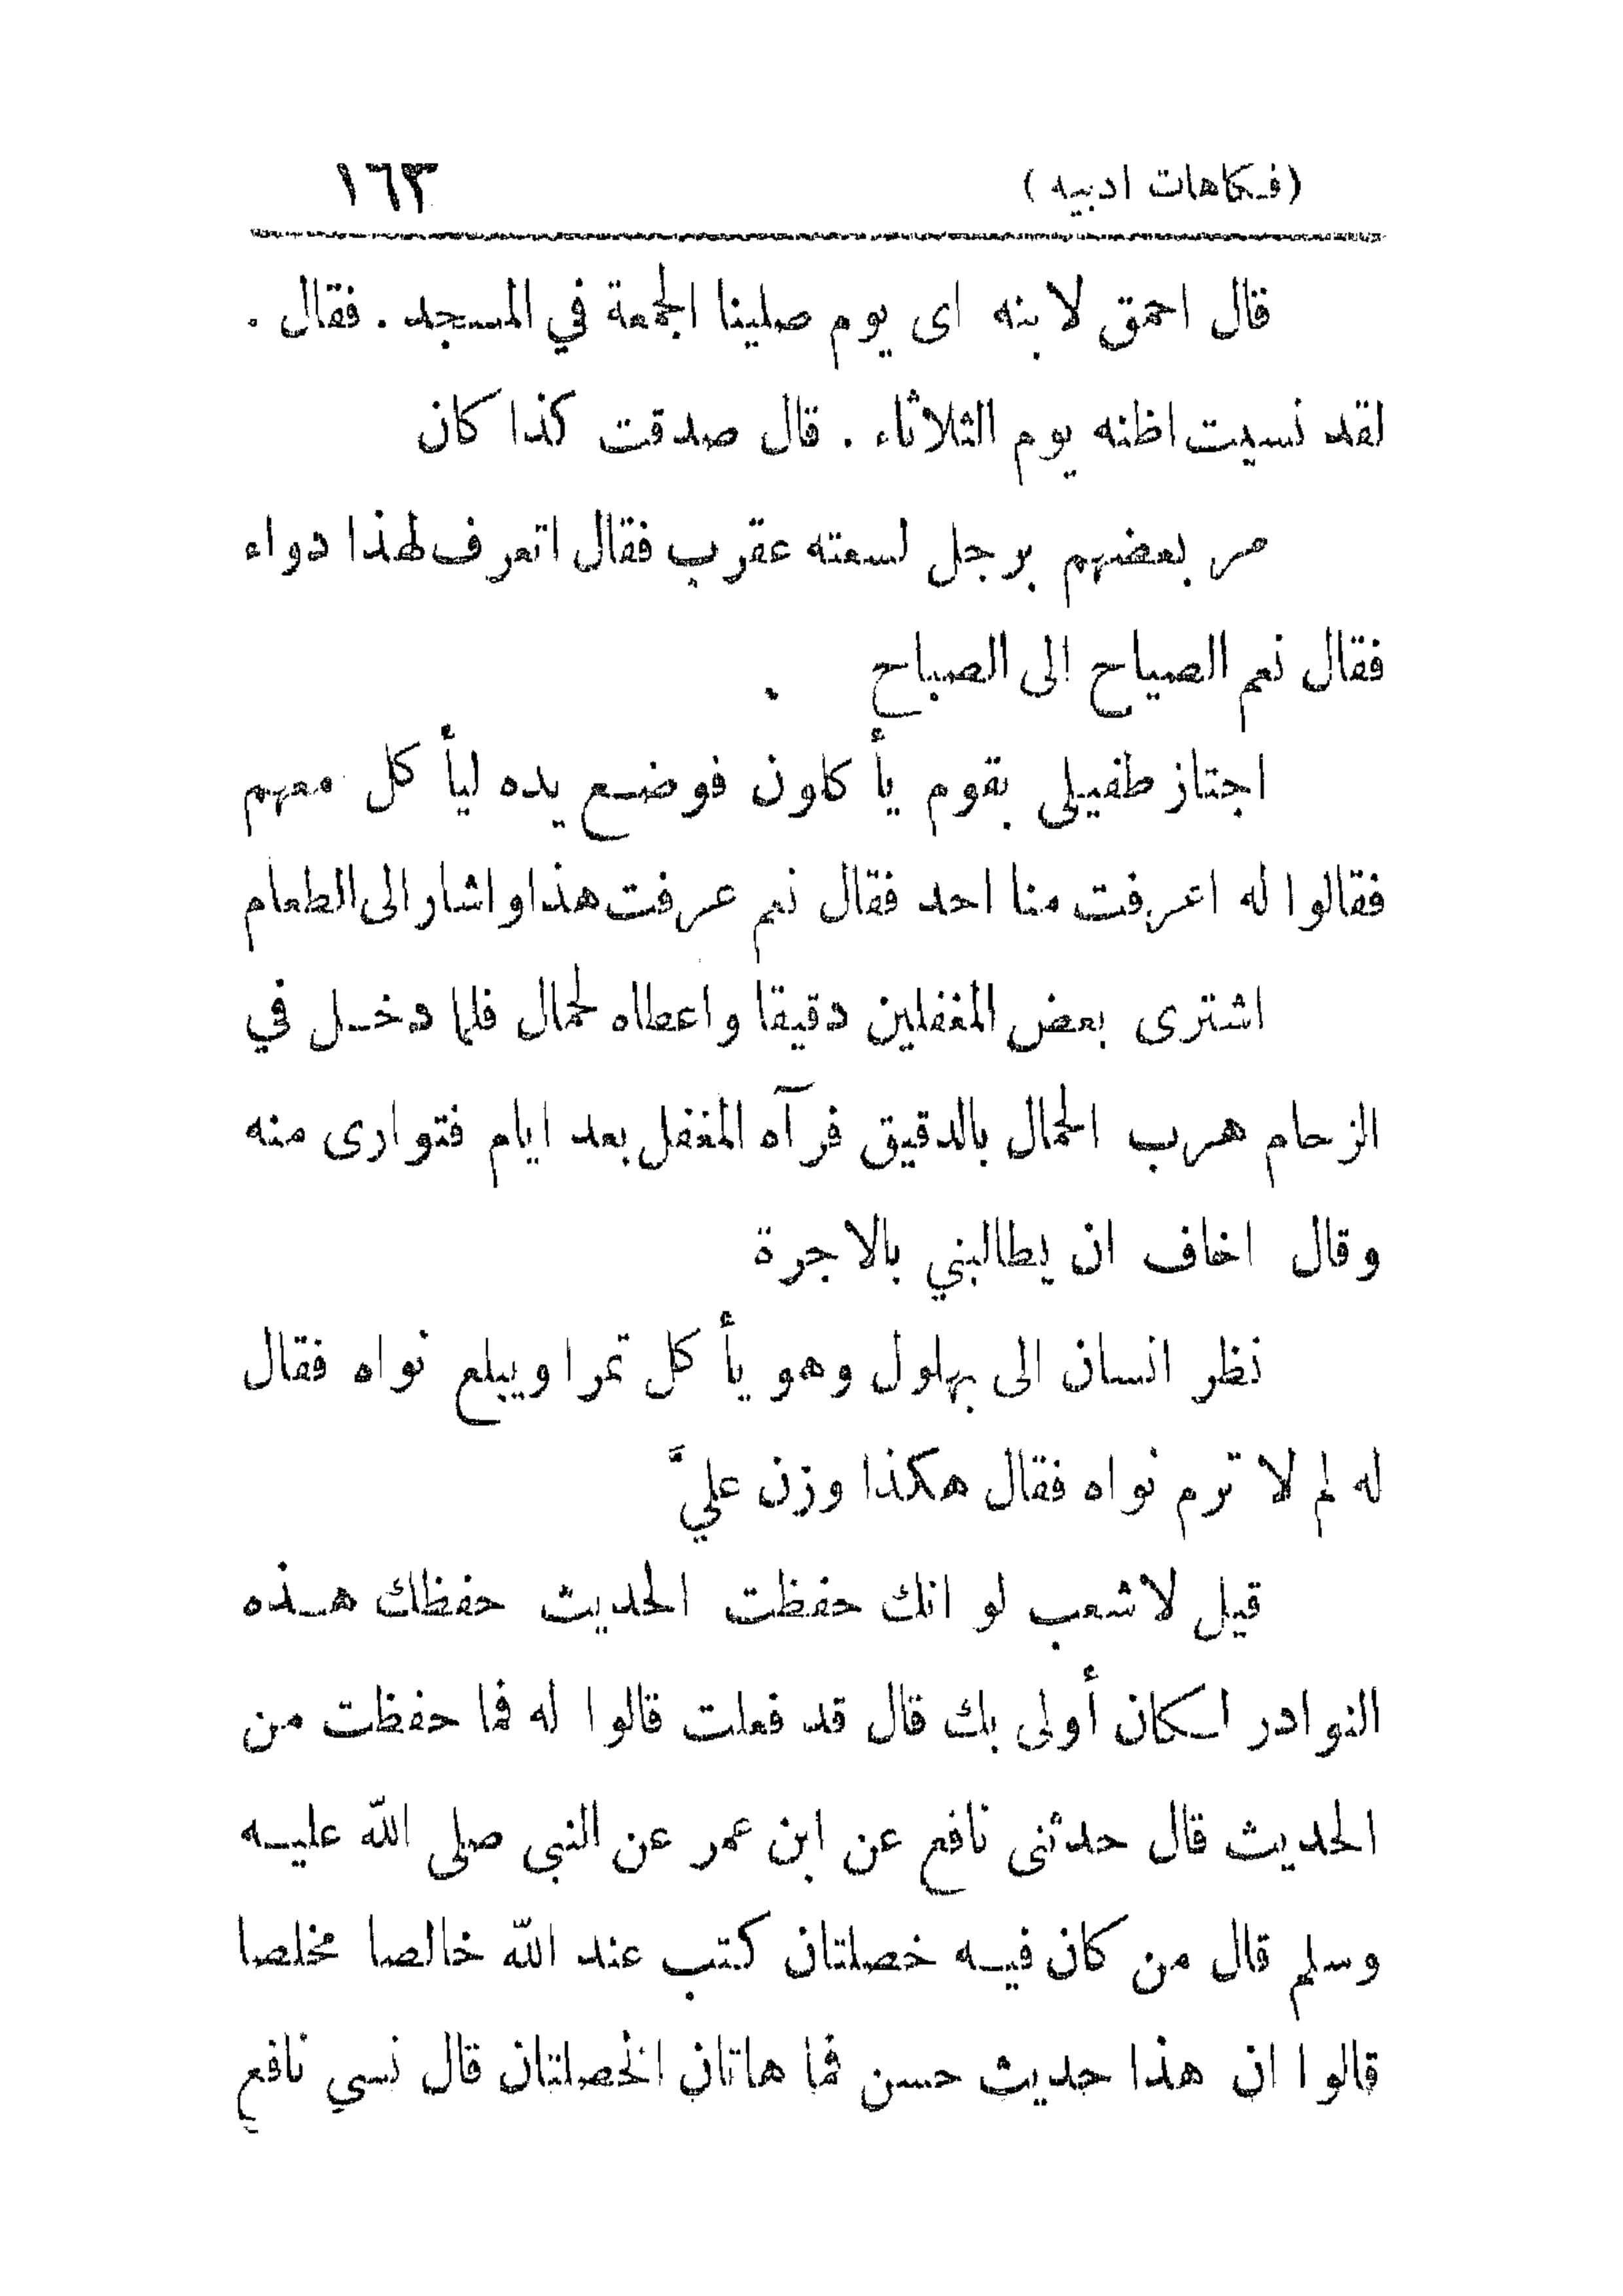 (فكاهات ادبيه) ١٦٣
قال احمق لابنه اى يوم صلينا الجمعة في المسجد . فقال .
لقد نسيت اظنه يوم الثلاثاء . قال صدقت كذا كان
مر بعضهم برجل لسعته عقرب فقال اتعرف لهذا دواء
فقال نعم الصياح الى الصباح .
اجتاز طفيلى بقوم يأكلون فوضع يده ليأكل معهم
فقالوا له اعرفت منا احد فقال نعم عرفت هذا واشار الى الطعام
اشترى بعض المغفلين دقيقا واعطاه لحمال فلما دخل في
الزحام هرب الحمال بالدقيق فرآه المغفل بعد ايام فتوارى منه
وقال اخاف ان يطالبني بالاجرة
نظر انسان الى بهلول وهو يأكل تمرا ويبلع نواه فقال
له لم لا ترم نواه فقال هكذا وزن عليَّ
قيل لاشعب لو انك حفظت الحديث حفظك هذه
النوادر لكان أولى بك قال قد فعلت قالوا له فما حفظت من
الحديث قال حدثنى نافع عن ابن عمر عن النبى صلى الله عليه
وسلم قال من كان فيه خصلتان كتب عند الله خالصا مخلصا
قالوا ان هذا حديث حسن فما هاتان الخصلتان قال نسي نافع